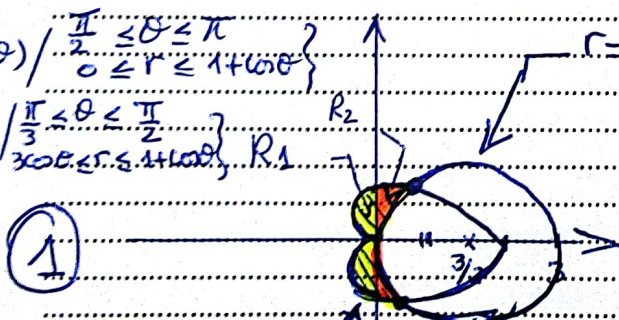 θ) / π/2 ≤ θ ≤ π
0 ≤ r ≤ 1+cosθ }
r=
/ π/3 ≤ θ ≤ π/2
3cosθ ≤ r ≤ 1+cosθ },
R2
R1
1
3/2
3